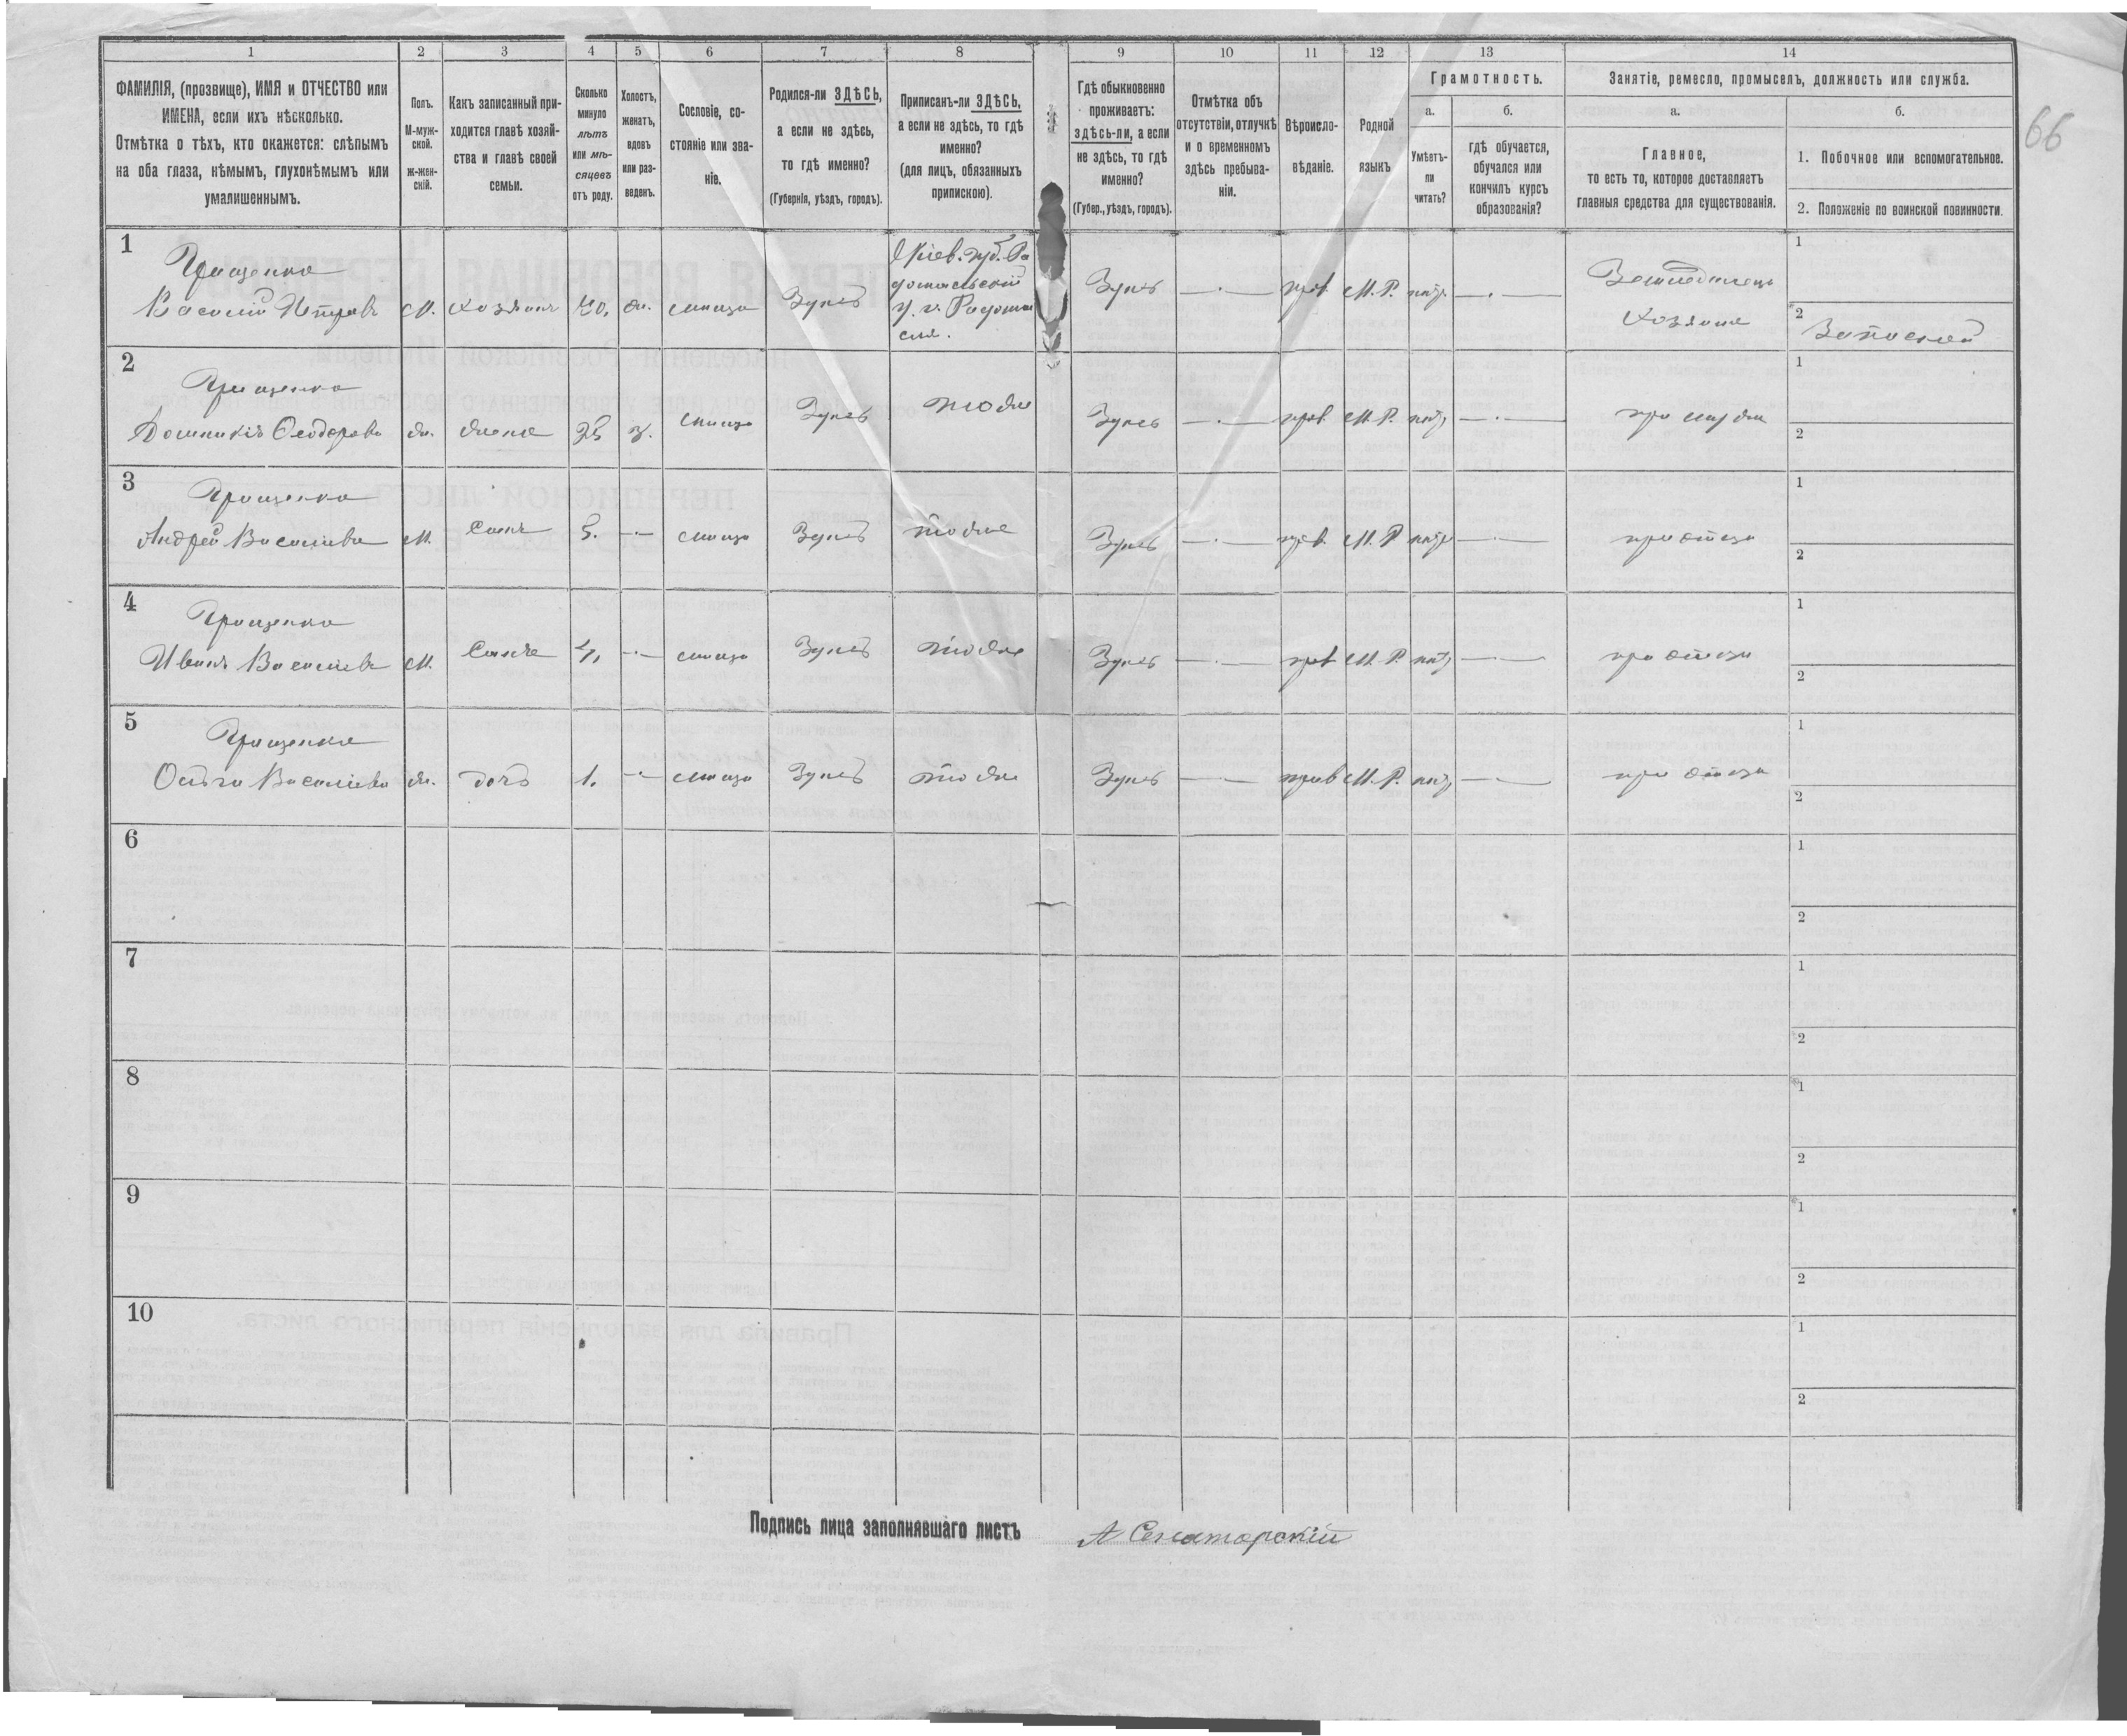 1 2 3 4 5 6 7 8 9 10 11 12 13 14
ФАМИЛІЯ, (прозвище), ИМЯ и ОТЧЕСТВО или
ИМЕНА, если ихъ нѣсколько.
Отмѣтка о тѣхъ, кто окажется: слѣпымъ
на оба глаза, нѣмымъ, глухонѣмымъ или
умалишеннымъ.
Полъ.
М-муж-
ской.
ж-жен-
скій.
Какъ записанный при-
ходится главѣ хозяй-
ства и главѣ своей
семьи.
Сколько
минуло
лѣтъ
или мѣ-
сяцевъ
отъ роду.
Холостъ,
женатъ,
вдовъ
или раз-
веденъ.
Сословіе, со-
стояніе или зва-
ніе.
Родился-ли ЗДѢСЬ,
а если не здѣсь,
то гдѣ именно?
(Губернія, уѣздъ, городъ).
Приписанъ-ли ЗДѢСЬ,
а если не здѣсь, то гдѣ
именно?
(для лицъ, обязанныхъ
припискою).
Гдѣ обыкновенно
проживаетъ:
здѣсь-ли, а если
не здѣсь, то гдѣ
именно?
(Губер., уѣздъ, городъ).
Отмѣтка объ
отсутствіи, отлучкѣ
и о временномъ
здѣсь пребыва-
ніи.
Вѣроиспо-
вѣданіе.
Родной
языкъ
Грамотность.
а.
Умѣетъ-
ли
читать?
б.
гдѣ обучается,
обучался или
кончилъ курсъ
образованія?
Занятіе, ремесло, промыселъ, должность или служба.
а.
Главное,
то есть то, которое доставляетъ
главныя средства для существованія.
б.
1. Побочное или вспомогательное.
2. Положеніе по воинской повинности.
66
1
Грищенко
Василій Петровъ М. хозяинъ 40. ж. Здѣсь
Кіев. губ. Ра
домысльскій
у. г. Радомы
сль.
Здѣсь —·— прав. М.Р. —·—
Земледѣлецъ
хозяинъ
1
2 Запасной
2
Грищенко
ж. жена 35 з. Здѣсь тоже Здѣсь —·— прав. М.Р. —·— при мужѣ
1
2
3
Грищенко
Андрей Васильевъ М. Сынъ 5. —·— Здѣсь тоже Здѣсь —·— прав. М.Р. —·— при отцѣ
1
2
4
Грищенко
Иванъ Васильевъ М. Сынъ 4, —·— Здѣсь тоже Здѣсь —·— прав М.Р. —·— при отцѣ
1
2
5
Грищенко
Ольга Васильева ж. дочь 1. —·— Здѣсь тоже Здѣсь —·— прав М.Р. —·— при отцѣ
1
2
6
1
2
7
1
2
8
1
2
9
1
2
10
1
2
Подпись лица заполнявшаго листъ А Сенаторскій